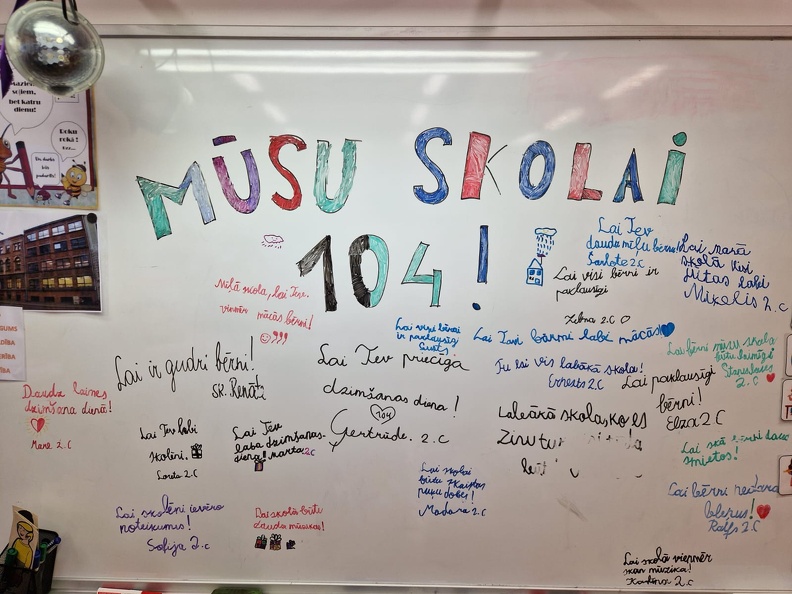 soļiem,
bet katru
dienu!
Roku
rokā!
MŪSU SKOLAI
104!
Lai Tev
daudz mīļu bērnu!
Šarlote 2.C
Lai visi bērni ir
paklausīgi
2.C
Lai manā
skolā visi
jūtas labi
Mikelis 2.C
Mīļā skola, lai Tev
vienmēr mācās bērni!
Lai visi bērni
ir paklausīgi
Lai Tavi bērni labi mācās
Tu esi vis labākā skola!
Ernests 2.C
Lai bērni mūsu skolā
būtu laimīgi
Staņislavs
2.C
Lai ir gudri bērni!
sk. Renāte
Lai Tev priecīga
dzimšanas diena!
104
Gertrūde. 2.C
Lai paklausīgi
bērni!
Elza 2.C
Daudz laimes
dzimšanas dienā!
2.C
Lai Tev labi
skolēni.
2.C
Lai Tev
laba dzimšanas
diena! Marta 2.C
Labākā skola ko es
Zinu tu
Lai skolai
būtu skaistas
puķu dobes!
Madara 2.C
smieties!
Lai bērni neizāra
Ralfs 2.C
Lai skolēni ievēro
noteikumus!
Sofija 2.C
Lai skolā būtu
daudz mūzikas!
Lai skolā vienmēr
skan mūzika!
2.C